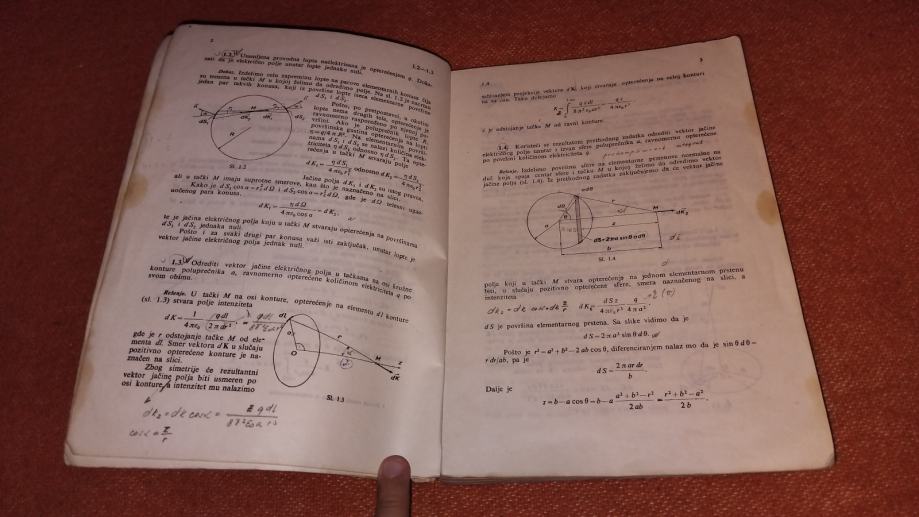 2
1.2—1.3
1.2. Usamljena provodna lopta naelektrisana je opterećenjem q. Doka-
zati da je električno polje unutar lopte jednako nuli.
Dokaz. Izdelimo celu zapreminu lopte na parove elementarnih konusa čija
su temena u tački M u kojoj želimo da odredimo polje. Na sl. 1.2 je nacrtan
jedan par takvih konusa, koji iz površine lopte iseca elementarne površine
dS₁ i dS₂.
Pošto, po pretpostavci, u okolini
lopte nema drugih tela, opterećenje je
ravnomerno raspoređeno po njenoj po-
vršini. Ako je poluprečnik lopte R,
površinska gustina opterećenja na lopti
η=q/4πR². Na elementarnim površi-
nama dS₁ i dS₂ se nalazi količina elek-
triciteta η dS₁ odnosno η dS₂. Ta opte-
rećenja u tački M stvaraju polja
K
dS₁
M
dK₁
dS₂
R
Sl. 1.2
dK₁ = η dS₁ / 4πε₀ r₁² odnosno dK₂ = η dS₂ / 4πε₀ r₂²
Jačine polja dK₁ i dK₂ su istog pravca,
ali u tački M imaju suprotne smerove, kao što je naznačeno na slici.
Kako je dS₁ cos α = r₁² dΩ i dS₂ cos α = r₂² dΩ, gde je dΩ telesni ugao
uočenog para konusa,
dK₁ = η dΩ / 4πε₀ cos α = dK₂,
te je jačina električnog polja koju u tački M stvaraju opterećenja na površinama
dS₁ i dS₂ jednaka nuli.
Pošto i za svaki drugi par konusa važi isti zaključak, unutar lopte je
vektor jačine električnog polja jednak nuli.
1.3. Odrediti vektor jačine električnog polja u tačkama na osi kružne
konture poluprečnika a, ravnomerno opterećene količinom elektriciteta q po
svom obimu.
Rešenje. U tački M na osi konture, opterećenje na elementu dl konture
(sl. 1.3) stvara polje intenziteta
dK = 1 / 4πε₀ · q dl / 2π a r²
gde je r odstojanje tačke M od ele-
menta dl. Smer vektora dK u slučaju
pozitivno opterećene konture je na-
značen na slici.
Zbog simetrije će rezultantni
vektor jačine polja biti usmeren po
osi konture, a intenzitet mu nalazimo
dl
a
O
r
M
z
dK
Sl. 1.3
dK₂ = dK cosα = z q dl / 8π²ε₀a r³
cosα = z/r
3
sabiranjem projekcija vektora dK, koji stvaraju opterećenja na celoj konturi
na tu osu. Tako dobijamo
r je odstojanje tačke M od ravni konture.
1.4. Koristeći se rezultatom prethodnog zadatka odrediti vektor jačine
električnog polja unutar i izvan sfere poluprečnika a, ravnomerno opterećene
po površini količinom elektriciteta q.
Rešenje. Izdelimo površinu sfere na elementarne prstenove normalne na
duž koja spaja centar sfere i tačku M u kojoj želimo da odredimo vektor
jačine polja (sl. 1.4). Iz prethodnog zadatka zaključujemo da će vektor jačine
adθ
dθ
θ
a
r
M
dK₂
z
dS=2πa sinθ adθ
b
Sl. 1.4
polja koji u tački M stvara opterećenje na jednom elementarnom prstenu
biti, u slučaju pozitivno opterećene sfere, smera naznačenog na slici, a
intenziteta
dK₂ = dK cosα = z/r
dK = dS z / 4πε₀ r³ · q / 4πa²
dS je površina elementarnog prstena. Sa slike vidimo da je
dS = 2πa² sin θ dθ.
Pošto je r² = a² + b² − 2ab cos θ, diferenciranjem nalazimo da je sin θ dθ =
r dr/ab, pa je
dS = 2πar dr / b.
Dalje je
z = b − a cos θ = b − a (a² + b² − r²) / 2ab = (r² + b² − a²) / 2b.